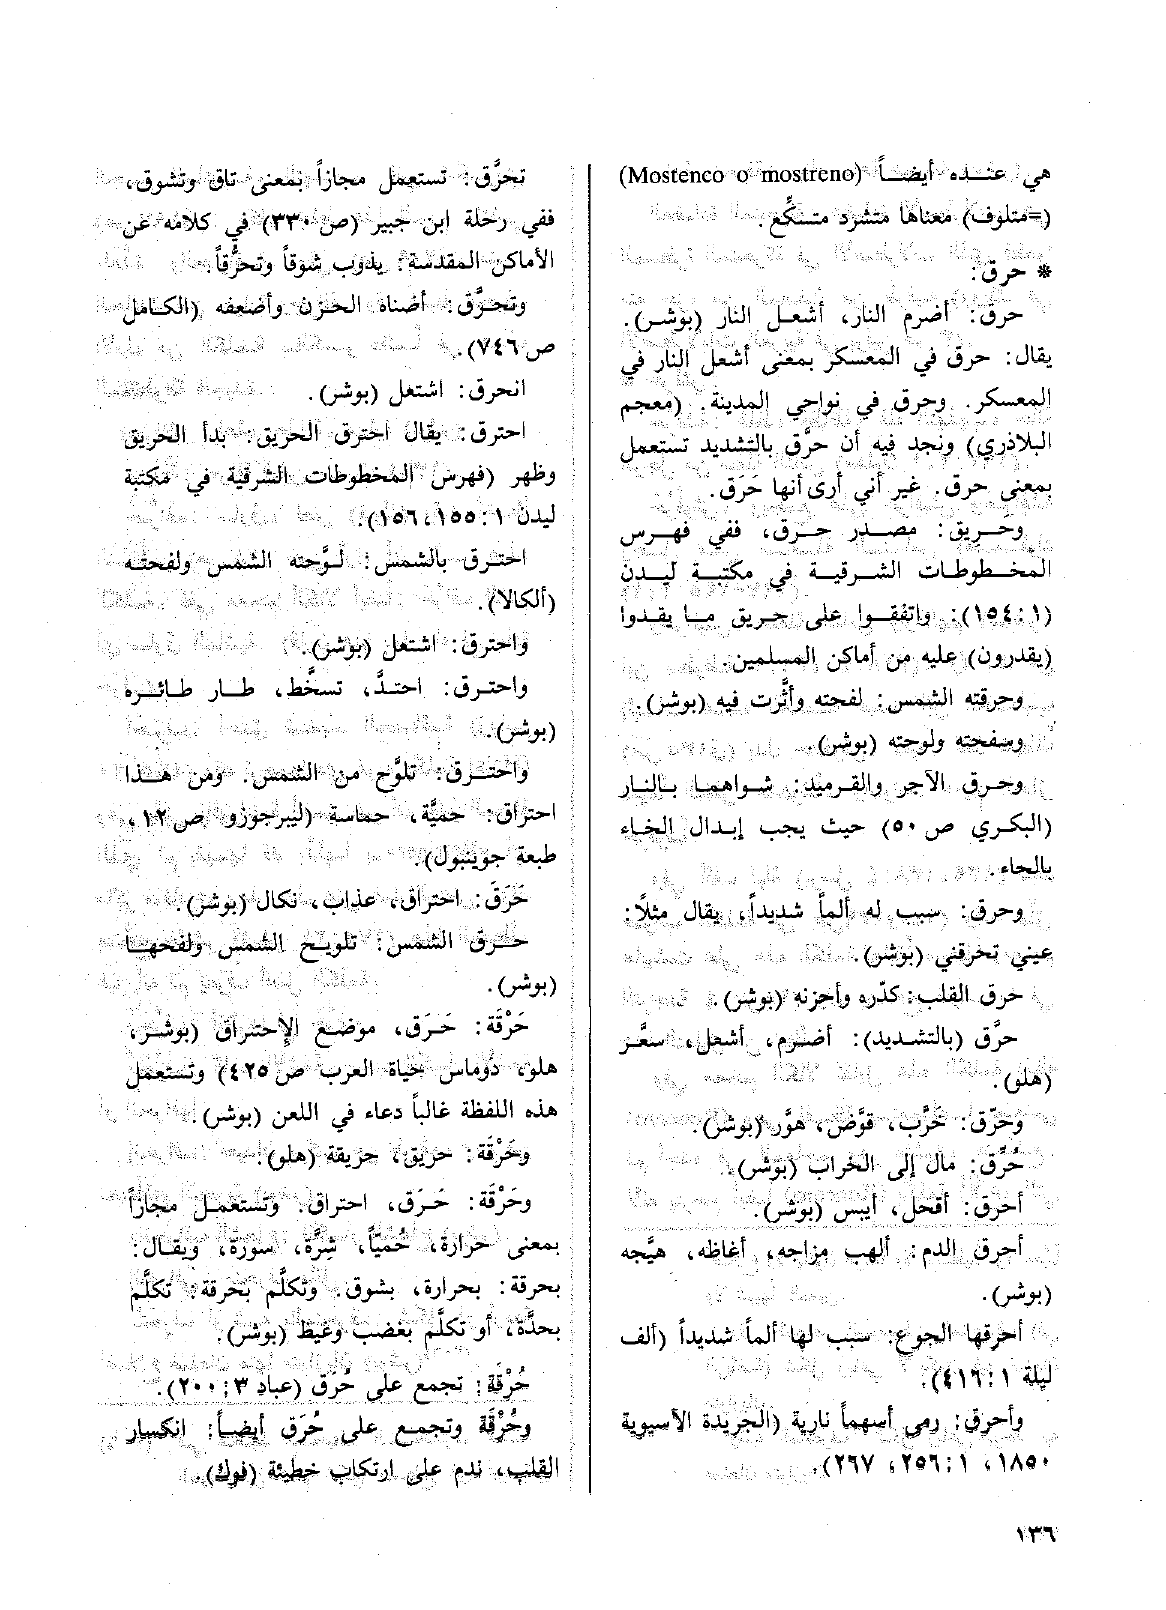 هي عنده أيضاً (Mostenco o mostreno)
(=متلوف) معناها متشرد متسكِّع.
* حرق:
حرق: أضرم النار، أشعل النار (بوشر).
يقال: حرق في المعسكر بمعنى أشعل النار في
المعسكر. وحرق في نواحي المدينة. (معجم
البلاذري) ونجد فيه أن حرَّق بالتشديد تستعمل
بمعنى حرق. غير أني أرى أنها حَرَق.
وحَريق: مصدر حرق، ففي فهرس
المخطوطات الشرقية في مكتبة ليدن
(١: ١٥٤): واتفقوا على حريق ما يقدوا
(يقدرون) عليه من أماكن المسلمين.
وحرقته الشمس: لفحته وأثَّرت فيه (بوشر).
وسفحته ولوحته (بوشر).
وحرق الآجر والقرميد: شواهما بالنار
(البكري ص ٥٠) حيث يجب إبدال الخاء
بالحاء.
وحرق: سبب له ألماً شديداً، يقال مثلًا:
عيني تحرقني (بوشر).
حرق القلب: كدّره وأحزنه (بوشر).
حرَّق (بالتشديد): أضرم، أشعل، سعَّر
(هلو).
وحرّق: خرَّب، قوَّض، هوَّر (بوشر).
حُرِّق: مال إلى الخراب (بوشر).
أحرق: أقحل، أيبس (بوشر).
أحرق الدم: ألهب مزاجه، أغاظه، هيَّجه
(بوشر).
أحرقها الجوع: سبب لها ألماً شديداً (ألف
ليلة ١: ٤١٦).
وأحرق: رمى أسهماً نارية (الجريدة الآسيوية
١٨٥٠، ١: ٢٥٦، ٢٦٧).
تحرَّق: تستعمل مجازاً بمعنى تاق وتشوق،
ففي رحلة ابن جبير (ص ٣٣٠) في كلامه عن
الأماكن المقدسة: يذوب شوقاً وتحرُّقاً.
وتحرَّق: أضناه الحزن وأضعفه (الكامل
ص ٧٤٦).
انحرق: اشتعل (بوشر).
احترق: يقال احترق الحريق: بدأ الحريق
وظهر (فهرس المخطوطات الشرقية في مكتبة
ليدن ١: ١٥٥، ١٥٦).
احترق بالشمس: لوَّحته الشمس ولفحته
(ألكالا).
واحترق: اشتعل (بوشر).
واحترق: احتدَّ، تسخَّط، طار طائره
(بوشر).
واحترق: تلوَّح من الشمس. ومن هذا
احتراق: حميَّة، حماسة (ليبرجوزو ص ١٢،
طبعة جوينبول).
حَرَق: احتراق، عذاب، نكال (بوشر).
حرق الشمس: تلويح الشمس ولفحها
(بوشر).
حَرْقَة: حَرَق، موضع الإحتراق (بوشر،
هلو، دوماس حياة العرب ص ٤٢٥) وتستعمل
هذه اللفظة غالباً دعاء في اللعن (بوشر).
وحَرْقَة: حريق، حريقة (هلو).
وحَرْقَة: حَرَق، احتراق. وتستعمل مجازاً
بمعنى حرارة، حُميَّاً، شِرَّة، سورة، ويقال:
بحرقة: بحرارة، بشوق. وتكلَّم بحرقة: تكلَّم
بحدَّة، أو تكلَّم بغضب وغيظ (بوشر).
حُرْقَة: تجمع على حُرَق (عباد ٣: ٢٠٠).
وحُرْقَة وتجمع على حُرَق أيضاً: انكسار
القلب، ندم على ارتكاب خطيئة (فوك).
١٣٦